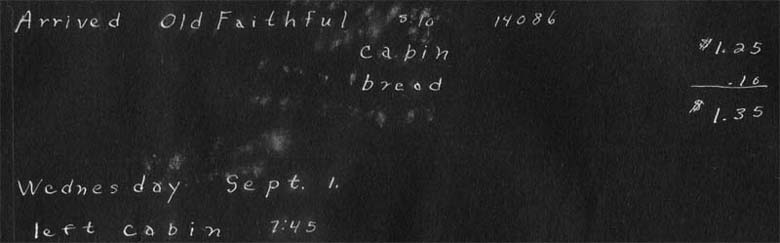 Arrived Old Faithful 5:10 14086
cabin $1.25
bread .10
$1.35
Wednesday Sept. 1.
left cabin 7:45